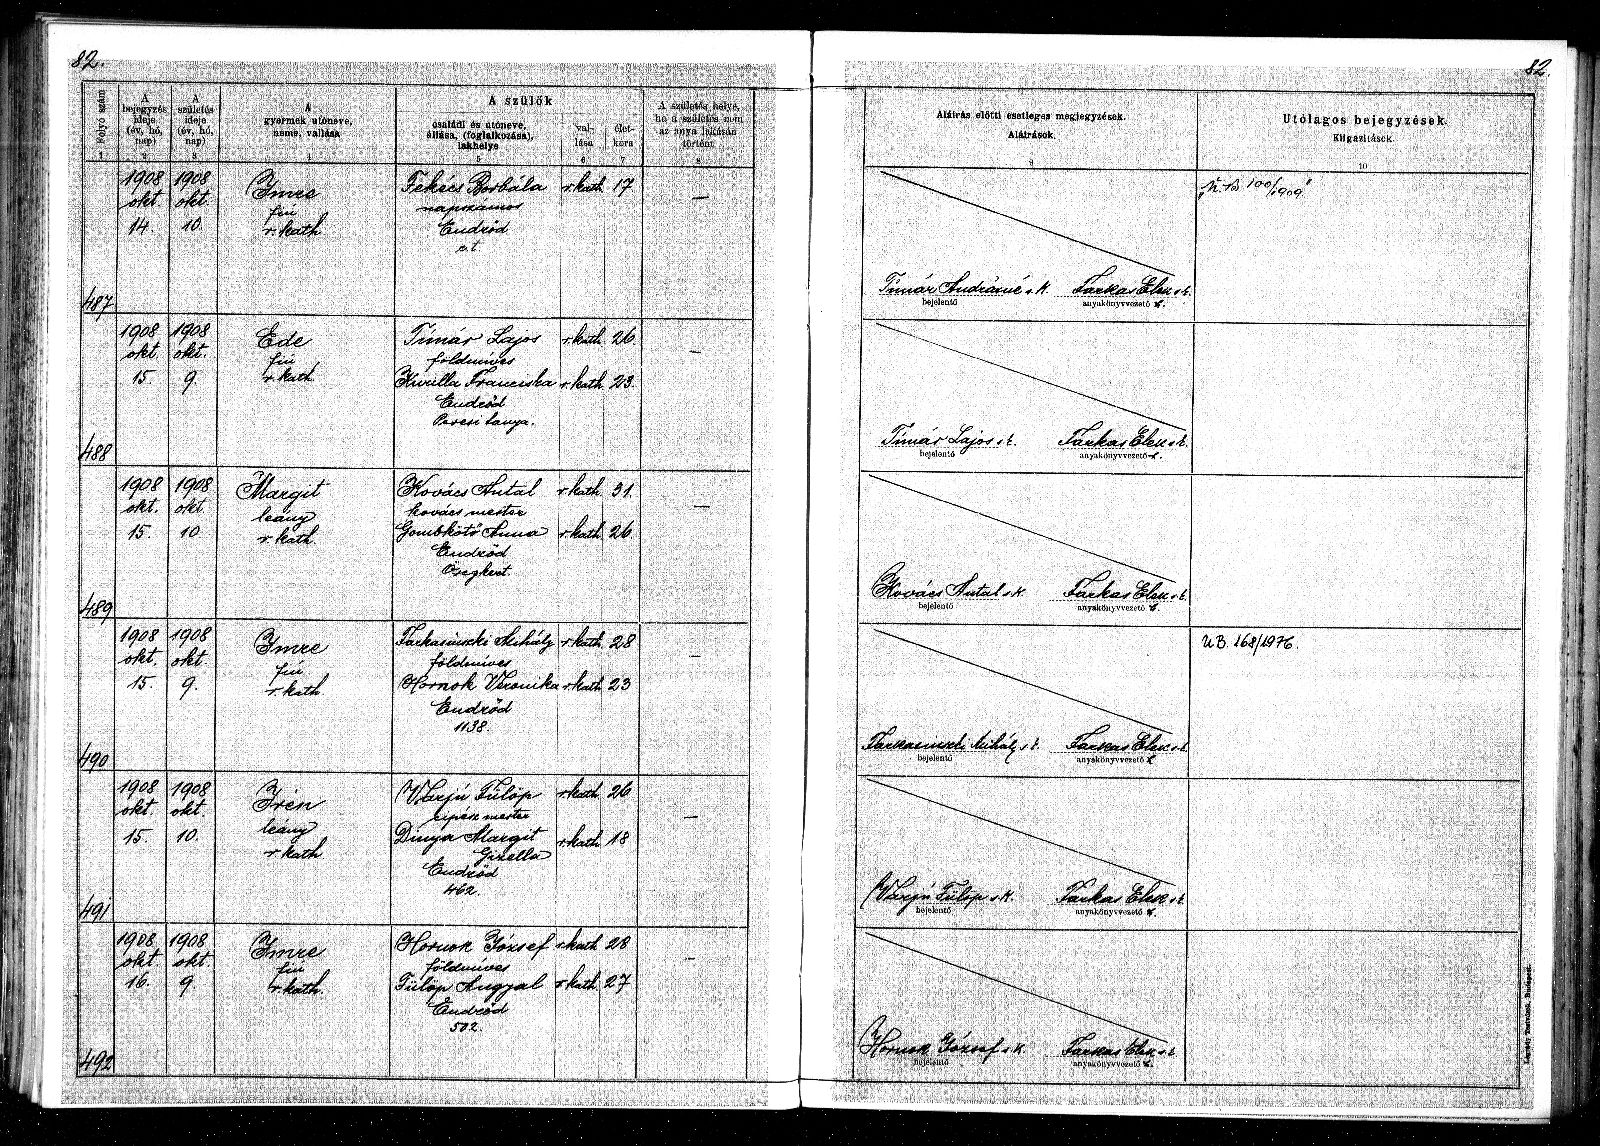 82.
82.
Folyó szám
A bejegyzés ideje (év, hó, nap)
A születés ideje (év, hó, nap)
A gyermek utóneve, neme, vallása
A szülők
családi és utóneve, állása, (foglalkozása), lakhelye
vallása
életkora
A születés helye, ha a születés nem az anya lakásán történt.
Aláírás előtti esetleges megjegyzések.
Aláírások.
Utólagos bejegyzések.
Kiigazítások.
1 2 3 4 5 6 7 8 9 10
1908 1908 Imre Fekécs Borbála r. kath. 17
okt. okt. fiu napszámos
14. 10. r. kath. Endrőd
487
Tímár Andrásné s. k. Farkas Elek s. k.
bejelentő anyakönyvvezető
1908 1908 Ede Tímár Lajos r. kath. 26
okt. okt. fiu földmíves
15. 9. r. kath. Kurilla Franciska r. kath. 23.
Endrőd
tanya.
488
Tímár Lajos s. k. Farkas Elek s. k.
bejelentő anyakönyvvezető
1908 1908 Margit Kovács Antal r. kath. 31.
okt. okt. leány kovács mester
15. 10 r. kath. Gombkötő Anna r. kath. 26
Endrőd
Öregkert.
489
Kovács Antal s. k. Farkas Elek s. k.
bejelentő anyakönyvvezető
1908 1908 Imre Farkasinszki Mihály r. kath. 28
okt. okt. fiu földmíves
15. 9. r. kath. Hornok Veronika r. kath. 23
Endrőd
1138.
U.B. 168/1976.
490
Farkasinszki Mihály s. k. Farkas Elek s. k.
bejelentő anyakönyvvezető
1908 1908 Irén Varjú Fülöp r. kath. 26
okt. okt. leány cipész mester
15. 10. r. kath Dinya Margit r. kath. 18
Gizella
Endrőd
462.
491
Varjú Fülöp s. k. Farkas Elek s. k.
bejelentő anyakönyvvezető
1908 1908 Imre Hornok József r. kath. 28
okt okt. fiu földmíves
16. 9. r. kath. Fülöp Angyal r. kath. 27
Endrőd
502.
492
Hornok József s. k. Farkas Elek s. k.
bejelentő anyakönyvvezető